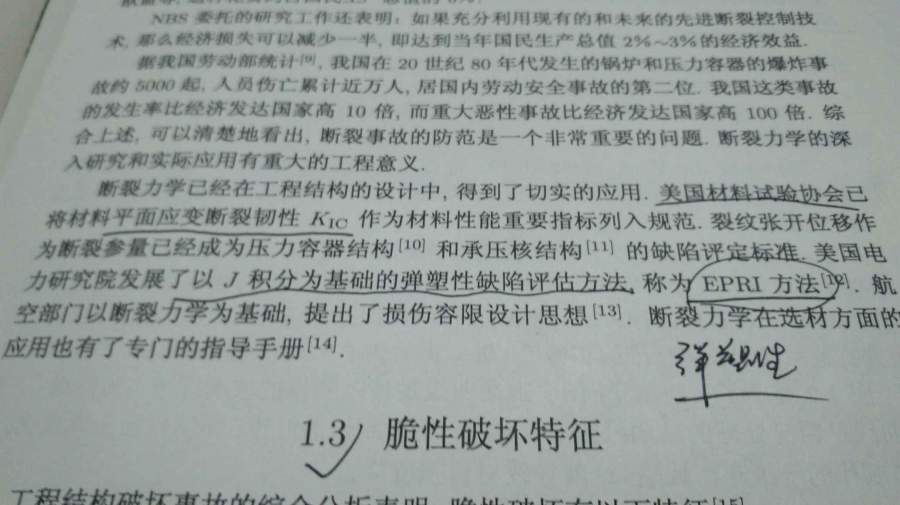 NBS 委托的研究工作还表明: 如果充分利用现有的和未来的先进断裂控制技
术, 那么经济损失可以减少一半, 即达到当年国民生产总值 2%~3% 的经济效益.
据我国劳动部统计[9], 我国在 20 世纪 80 年代发生的锅炉和压力容器的爆炸事
故约 5000 起, 人员伤亡累计近万人, 居国内劳动安全事故的第二位. 我国这类事故
的发生率比经济发达国家高 10 倍, 而重大恶性事故比经济发达国家高 100 倍. 综
合上述, 可以清楚地看出, 断裂事故的防范是一个非常重要的问题. 断裂力学的深
入研究和实际应用有重大的工程意义.
断裂力学已经在工程结构的设计中, 得到了切实的应用. 美国材料试验协会已
将材料平面应变断裂韧性 KIC 作为材料性能重要指标列入规范. 裂纹张开位移作
为断裂参量已经成为压力容器结构[10] 和承压核结构[11] 的缺陷评定标准. 美国电
力研究院发展了以 J 积分为基础的弹塑性缺陷评估方法, 称为 EPRI 方法[12]. 航
空部门以断裂力学为基础, 提出了损伤容限设计思想[13]. 断裂力学在选材方面的
应用也有了专门的指导手册[14].
弹塑性
1.3 脆性破坏特征
工程结构破坏事故的综合分析表明, 脆性破坏有以下特征[15]